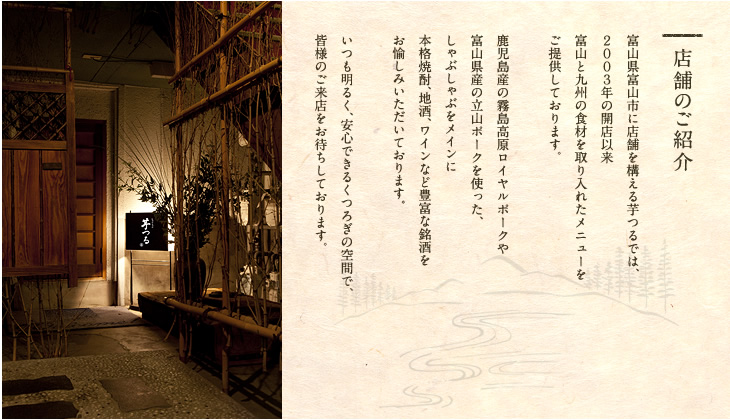 店舗のご紹介
富山県富山市に店舗を構える芋つるでは、
2003年の開店以来
富山と九州の食材を取り入れたメニューを
ご提供しております。
鹿児島産の霧島高原ロイヤルポークや
富山県産の立山ポークを使った、
しゃぶしゃぶをメインに
本格焼酎、地酒、ワインなど豊富な銘酒を
お愉しみいただいております。
いつも明るく、安心できるくつろぎの空間で、
皆様のご来店をお待ちしております。
芋つる